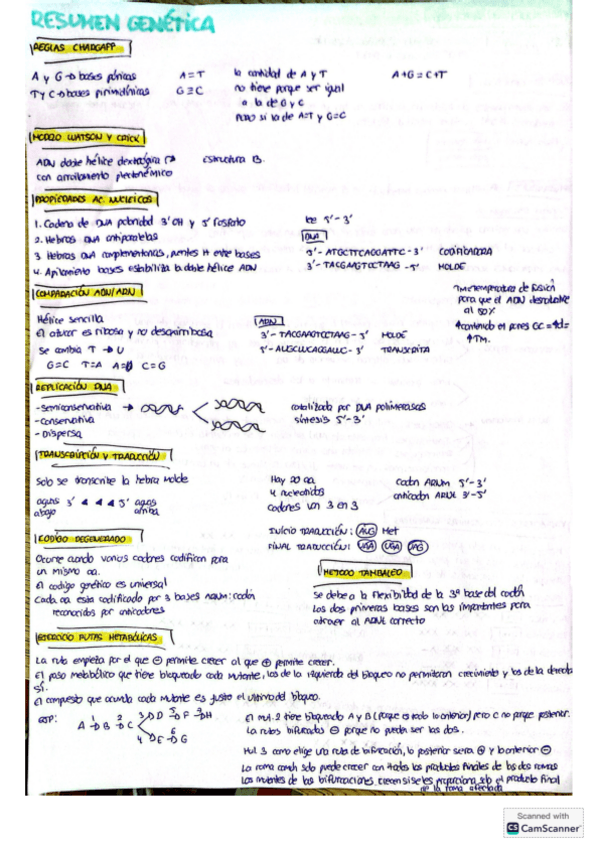 RESUMEN GENÉTICA
REGLAS CHARGAFF
A y G → bases púricas A=T la cantidad de A y T A+G = C+T
T y C → bases pirimidínicas G≡C no tiene porque ser igual
a la de G y C
pero si la de A=T y G=C
MODELO WATSON Y CRICK
ADN doble hélice dextrógira Estructura B.
con arrollamiento plectonémico
PROPIEDADES AC. NUCLEICOS
1. Cadena de DNA polaridad 3'OH y 5' fosfato lee 5'-3'
2. Hebras DNA antiparalelas DNA
3. Hebras DNA complementarias, puentes H entre bases CODIFICADORA
4. Apilamiento bases estabiliza la doble hélice ADN MOLDE
COMPARACIÓN ADN/ARN
Tm: temperatura de fusión
para que el ADN desnaturalice
al 50%
Hélice sencilla
El azucar es ribosa y no desoxirribosa MOLDE
Se cambia T → U TRANSCRITA
G≡C T=A A=U C=G
↑contenido en pares GC = ↑d =
↑TM.
REPLICACIÓN DNA
- Semiconservativa → catalizada por DNA polimerasas
- Conservativa síntesis 5'-3'
- Dispersa
TRANSCRIPCIÓN Y TRADUCCIÓN
Solo se transcribe la hebra molde Hay 20 aa codon ARNm 5'-3'
4 nucleotidos anticodon ARNt 3'-5'
aguas 3' 5' aguas codones van 3 en 3
abajo arriba
CODIGO DEGENERADO INICIO TRADUCCIÓN: AUG Met
FINAL TRADUCCIÓN: UAA UGA UAG
Ocurre cuando varios codones codifican para
un mismo aa.
El codigo genético es universal
Cada aa esta codificado por 3 bases ARNm: codón
reconocidos por anticodones
METODO TAMBALEO
Se debe a la flexibilidad de la 3ª base del codón
Los dos primeras bases son las importantes para
atraer al ARNt correcto
EJERCICIO RUTAS METABÓLICAS
La ruta empieza por el que ⊖ permite crecer al que ⊕ permite crecer.
El paso metabólico que tiene bloqueado cada mutante, los de la izquierda del bloqueo no permitaran crecimiento y los de la derecha
sí.
El compuesto que acumula cada mutante es justo el ultimo del bloqueo.
El mut. 2 tiene bloqueado A y B (porque es todo lo anterior) pero C no porque posterior.
La rutas bifurcadas porque no pueden ser las dos.
Mut 3 como elige una ruta de bifurcación, lo posterior sera ⊕ y lo anterior ⊖
La rama común solo puede crecer con todos los productos finales de las dos ramas
Los mutantes de las bifurcaciones crecen si se les proporciona solo el producto final
de la rama afectada
Scanned with
CS CamScanner